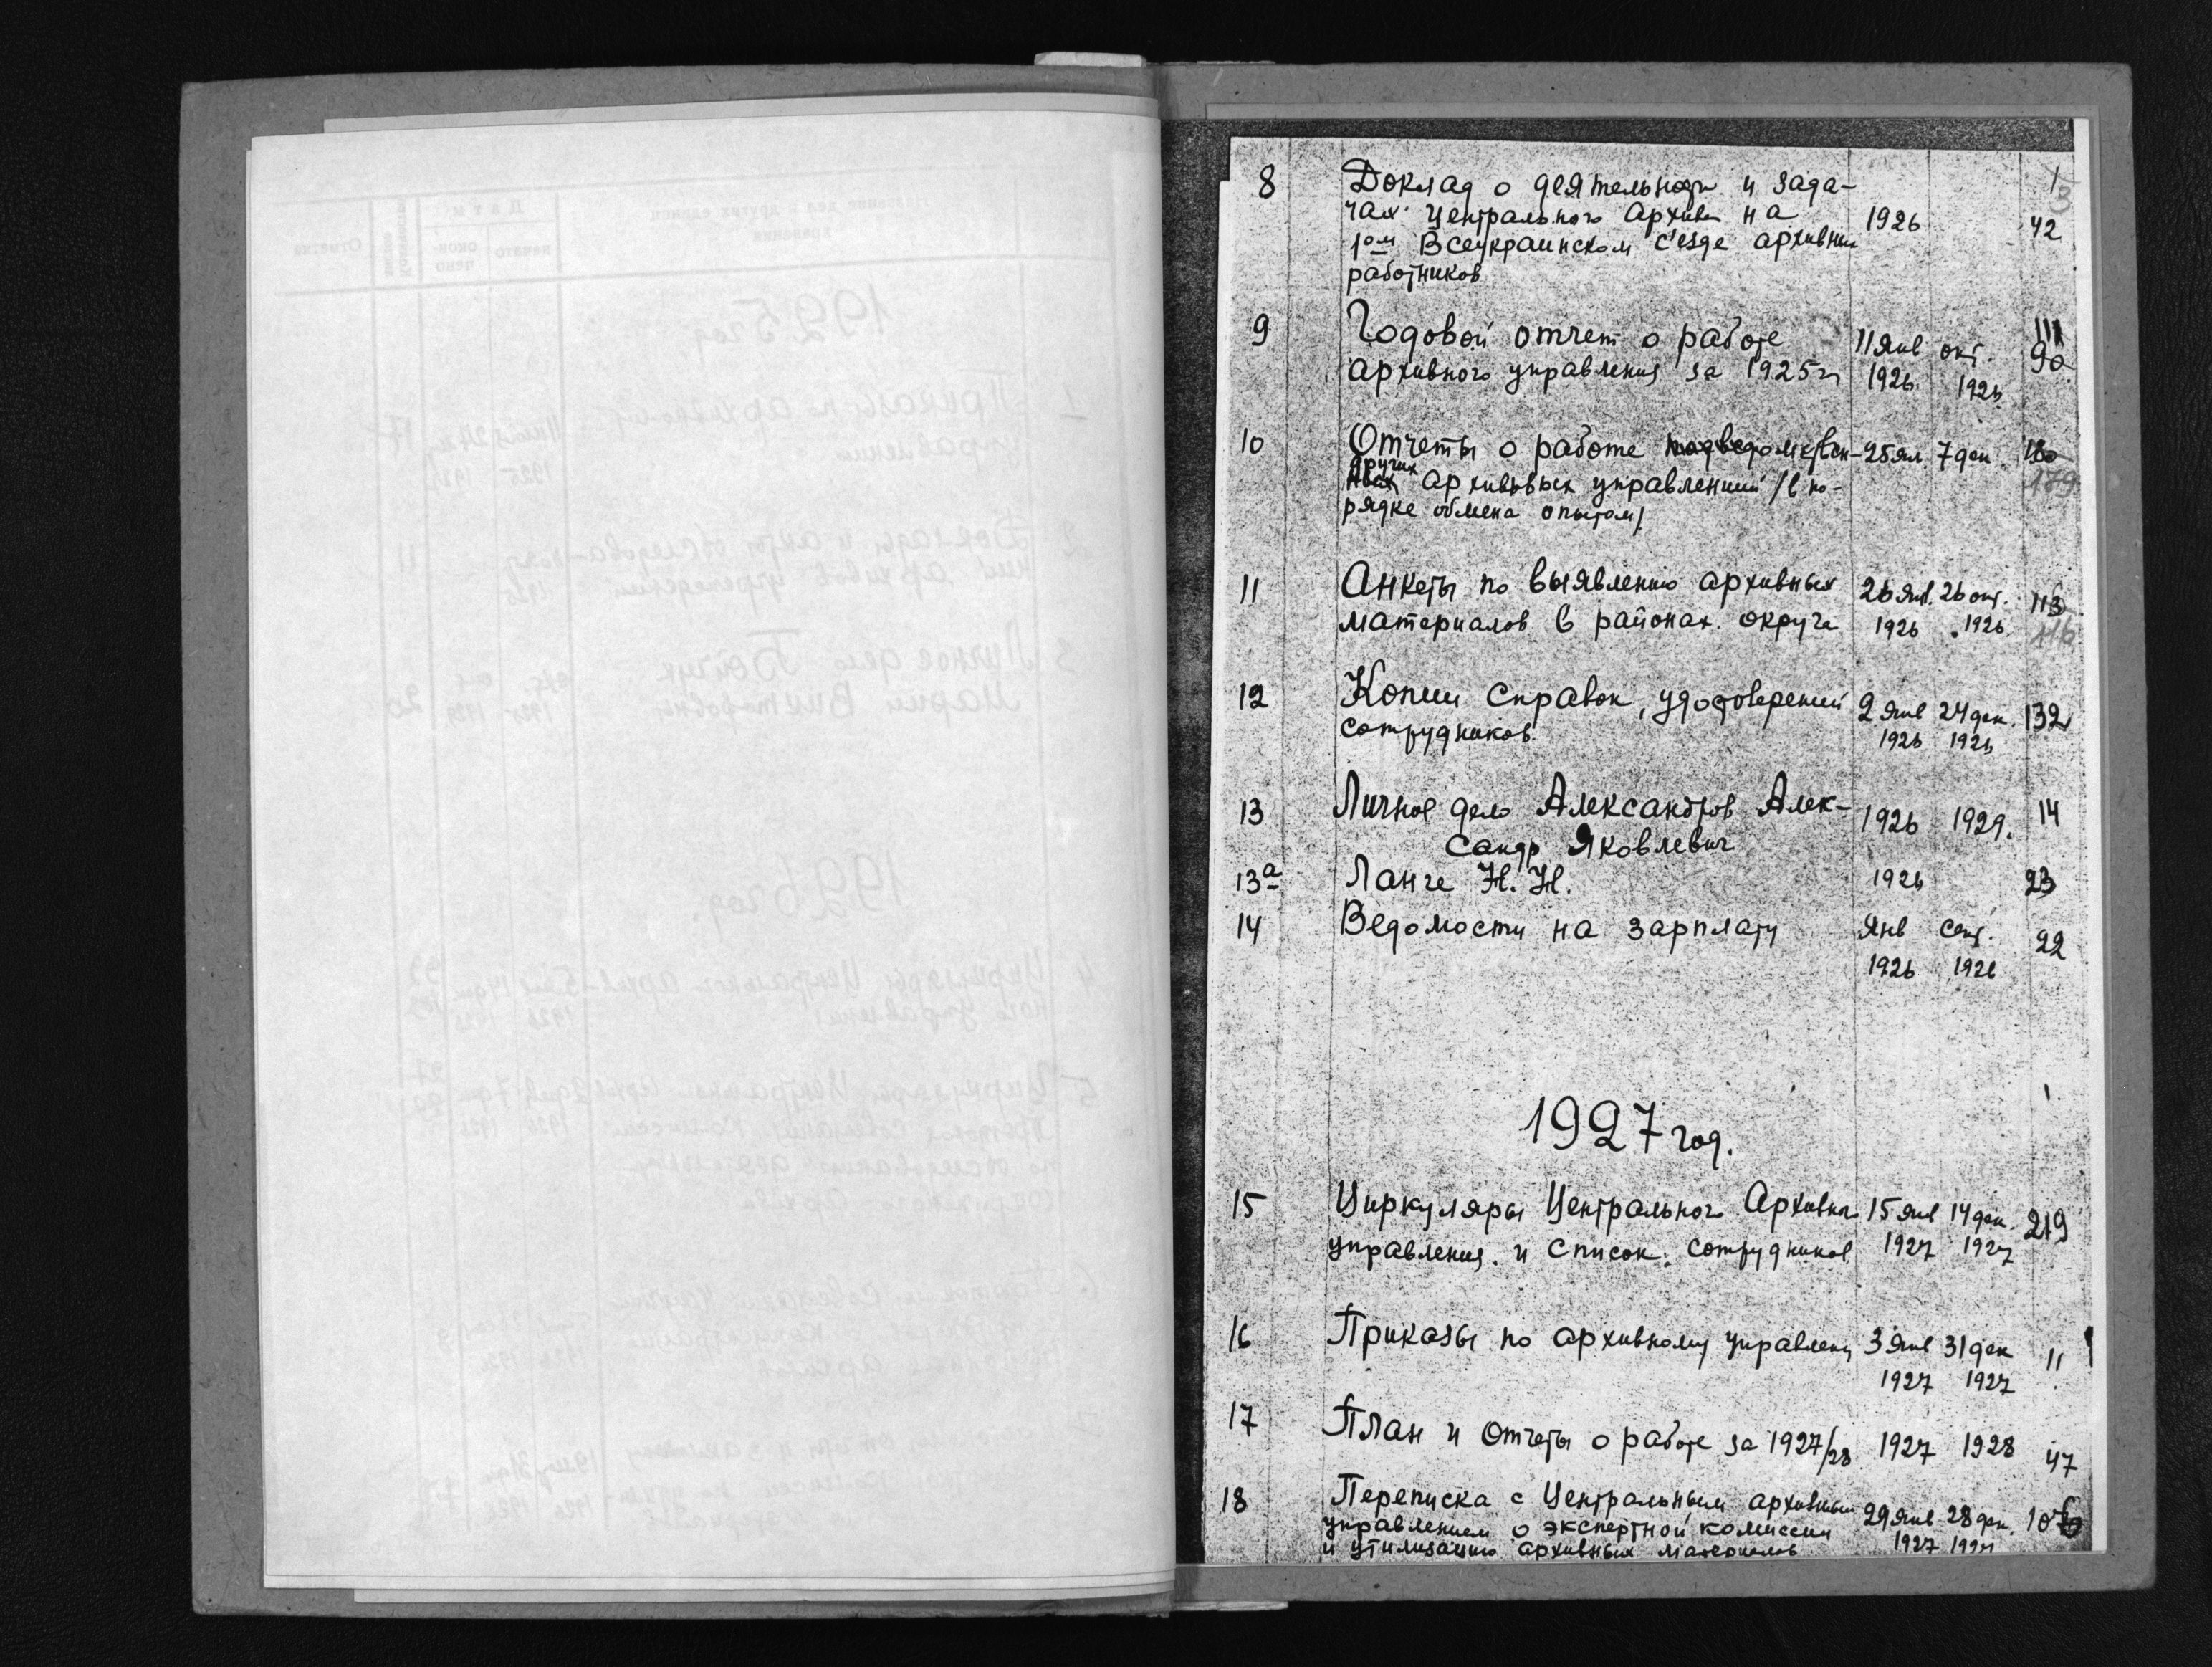 8 Доклад о деятельности и зада- 1
чах Центрального Архива на 1926 42
1ом Всеукраинском с'езде архивных
работников
9 Годовой отчет о работе 11 янв окт. 111
архивного управления за 1925 г. 1926 1926 90
10 Отчеты о работе 25 ян. 7 дек. 180
других архивных управлений /в по- 179
рядке обмена опытом/
11 Анкеты по выявлению архивных 26 янв. 26 окт. 113
материалов в районах округа 1926 1926 116
12 Копии справок, удостоверений 2 янв 24 дек. 132
сотрудников 1926 1926
13 Личное дело Александров Алек- 1926 1929. 14
сандр Яковлевич
13а Ланге Н. Н. 1926 23
14 Ведомости на зарплату янв сент. 22
1926 1926
1927 год.
15 Циркуляры Центрального Архивно 15 янв 14 дек. 219
управления и список сотрудников 1927 1927
16 Приказы по архивному управлению 3 янв 31 дек 11
1927 1927
17 План и отчеты о работе за 1927/28 1927 1928 47
18 Переписка с Центральным архивным 29 янв 28 дек. 10
управлением о экспертной комиссии 1927 1927
и утилизацию архивных материалов